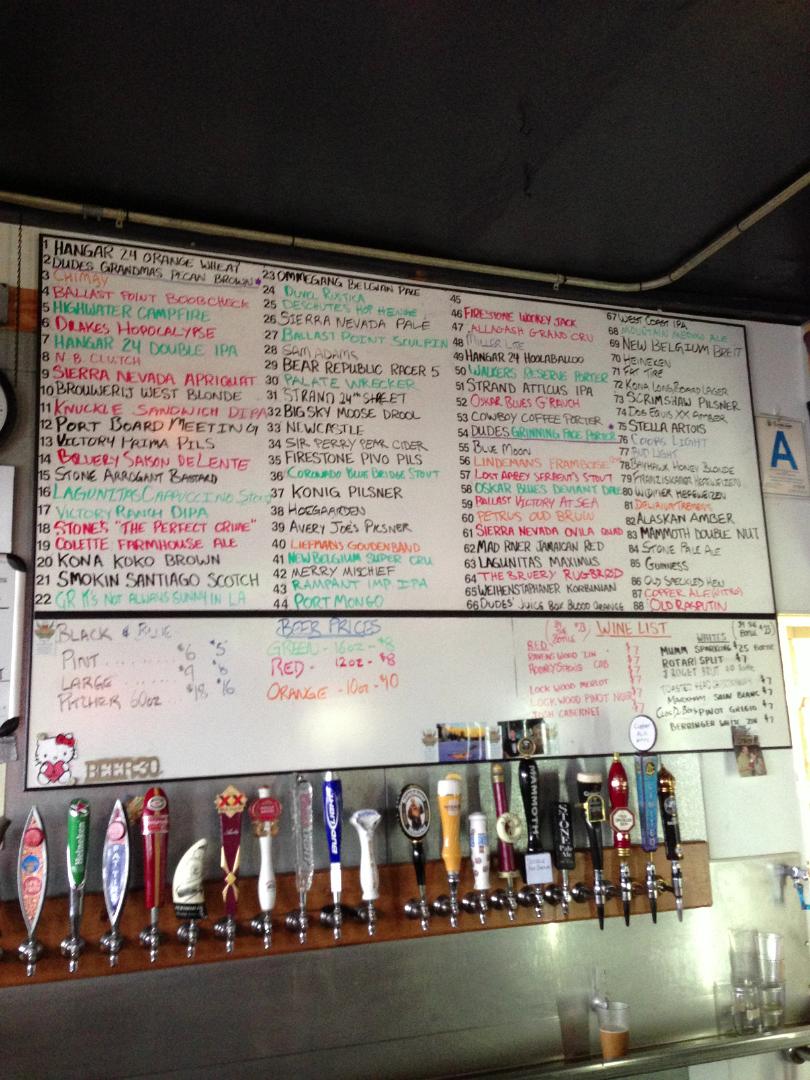 1 HANGAR 24 ORANGE WHEAT
2 DUDES GRANDMAS PECAN BROWN
3 CHIMAY
4 BALLAST POINT BOOBCHECK
5 HIGHWATER CAMPFIRE
6 DRAKES HOPOCALYPSE
7 HANGAR 24 DOUBLE IPA
8 N.B. CLUTCH
9 SIERRA NEVADA APRIQUAT
10 BROUWERIJ WEST BLONDE
11 KNUCKLE SANDWICH DIPA
12 PORT BOARD MEETING
13 VICTORY PRIMA PILS
14 BRUERY SAISON DE LENTE
15 STONE ARROGANT BASTARD
16 LAGUNITAS CAPPUCCINO STOUT
17 VICTORY RANCH DIPA
18 STONE'S "THE PERFECT CRIME"
19 COLETTE FARMHOUSE ALE
20 KONA KOKO BROWN
21 SMOKIN SANTIAGO SCOTCH
22 GR IT'S NOT ALWAYS SUNNY IN LA
23 OMMEGANG BELGIAN PALE
24 DUVEL RUSTICA
25 DESCHUTES HOP HENGE
26 SIERRA NEVADA PALE
27 BALLAST POINT SCULPIN
28 SAM ADAMS
29 BEAR REPUBLIC RACER 5
30 PALATE WRECKER
31 STRAND 24TH STREET
32 BIG SKY MOOSE DROOL
33 NEWCASTLE
34 SIR PERRY PEAR CIDER
35 FIRESTONE PIVO PILS
36 CORONADO BLUE BRIDGE STOUT
37 KONIG PILSNER
38 HOEGAARDEN
39 AVERY JOE'S PILSNER
40 LIEFMANS GOUDENBAND
41 NEW BELGIUM SUPER CRU
42 MERRY MISCHIEF
43 RAMPANT IMP. IPA
44 PORT MONGO
45
46 FIRESTONE WOOKEY JACK
47 ALLAGASH GRAND CRU
48 MILLER LITE
49 HANGAR 24 HOOLABALLOO
50 WALKERS RESERVE PORTER
51 STRAND ATTICUS IPA
52 OSKAR BLUES G'KNIGHT
53 COWBOY COFFEE PORTER
54 DUDES GRINNING FACE PORTER
55 BLUE MOON
56 LINDEMANS FRAMBOISE
57 LOST ABBEY SERPENT'S STOUT
58 OSKAR BLUES DEVIANT DALE
59 BALLAST VICTORY AT SEA
60 PETRUS OUD BRUIN
61 SIERRA NEVADA OVILA QUAD
62 MAD RIVER JAMAICAN RED
63 LAGUNITAS MAXIMUS
64 THE BRUERY RUGBROD
65 WEIHENSTEPHANER KORBINIAN
66 DUDES' JUICE BOX BLOOD ORANGE
67 WEST COAST IPA
68 MOUNTAIN MEADOW ALE
69 NEW BELGIUM BRETT
70 HEINEKEN
71 FAT TIRE
72 KONA LONGBOARD LAGER
73 SCRIMSHAW PILSNER
74 DOS EQUIS XX AMBER
75 STELLA ARTOIS
76 COORS LIGHT
77 BUD LIGHT
78 BAYHAWK HONEY BLONDE
79 FRANZISKANER HEFEWEIZEN
80 WIDMER HEFEWEIZEN
81 DELIRIUM TREMENS
82 ALASKAN AMBER
83 MAMMOTH DOUBLE NUT
84 STONE PALE ALE
85 GUINNESS
86 OLD SPECKLED HEN
87 COPPER ALE (NITRO)
88 'OLD RASPUTIN
BLACK & BLUE
PINT ........ $6 $5
LARGE ....... $9 $8
PITCHER 60oz ... $18, $16
BEER PRICES
GREEN - 16oz - $8
RED - 12oz - $8
ORANGE - 10oz - $10
WINE LIST
RED
LOCKWOOD MERLOT $7
LOCKWOOD PINOT NOIR $7
CABERNET $7
WHITES
MUMM SPARKLING $25 BOTTLE
ROTARI SPLIT $7
MARKHAM SAUV BLANC $7
PINOT GRIGIO $7
BERRINGER WHITE ZIN $7
BEER:30
A
Heineken
FAT TIRE
XX
BUD LIGHT
MAMMOTH
STONE